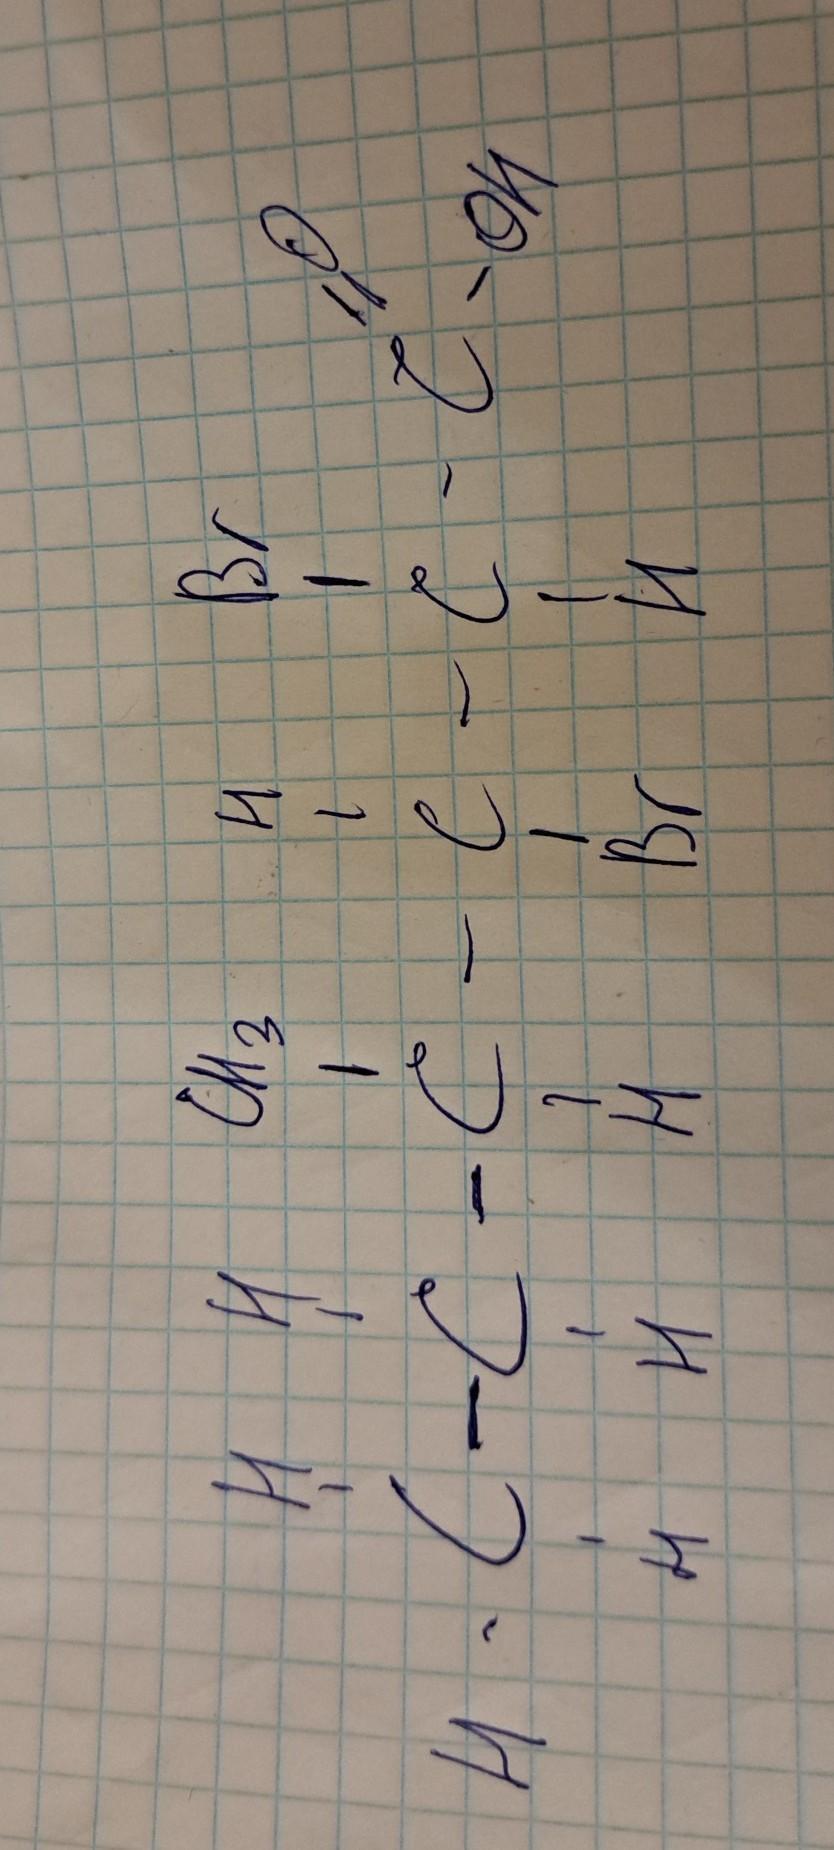 H H CH3 H Br O
H - C - C - C - C - C - C - OH
H H H Br H